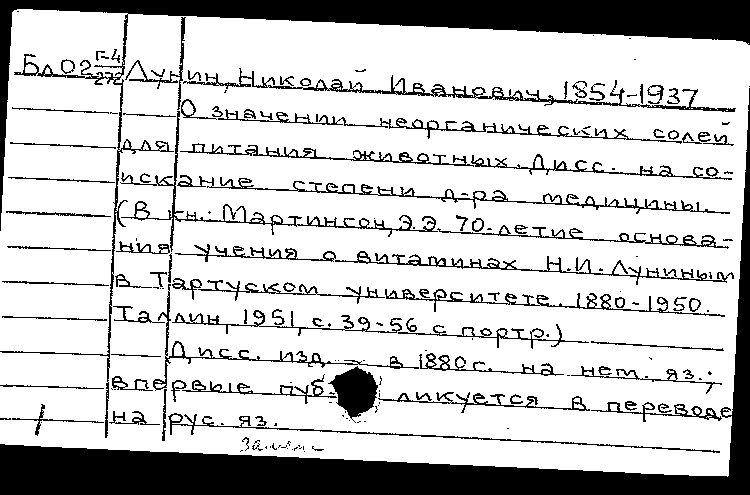 Бл02 Г-4/272 Лунин, Николай Иванович, 1854-1937
О значении неорганических солей
для питания животных. Дисс. на со-
искание степени д-ра медицины.
(В кн.: Мартинсон, Э.Э. 70-летие основа-
ния учения о витаминах Н.И.Луниным
в Тартуском университете. 1880-1950.
Таллин, 1951, с. 39-56 с портр.)
Дисс. изд. - в 1880г. на нем. яз.;
впервые публикуется в переводе
на рус. яз.